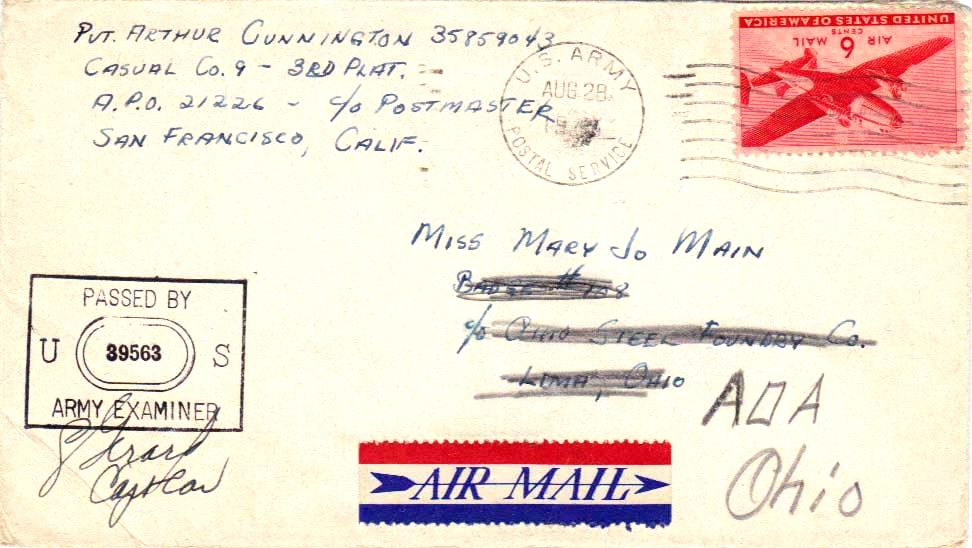 Pvt. Arthur Gunnington 35859043
Casual Co. 9 - 3RD Plat.
A.P.O. 21226 - c/o Postmaster
San Francisco, Calif.
U.S. ARMY
AUG 28
POSTAL SERVICE
UNITED STATES OF AMERICA
CENTS
6
AIR MAIL
Miss Mary Jo Main
Badge # 108
c/o Ohio Steel Foundry Co.
Lima, Ohio
ADA
Ohio
PASSED BY
U 39563 S
ARMY EXAMINER
AIR MAIL